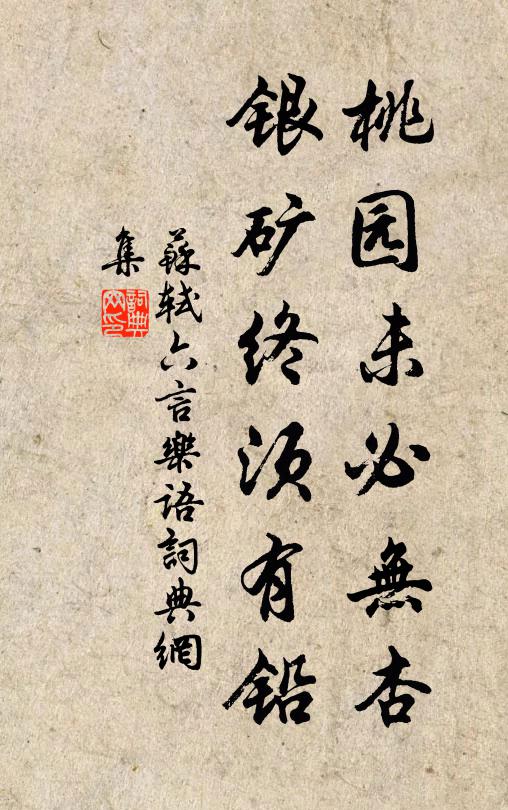 桃园未必無杏
银矿终须有铅
蘇轼六言樂语詞典網
集
詞典網印